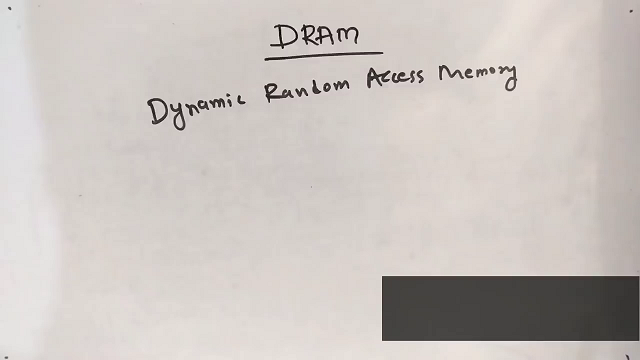 DRAM
Dynamic Random Access Memory